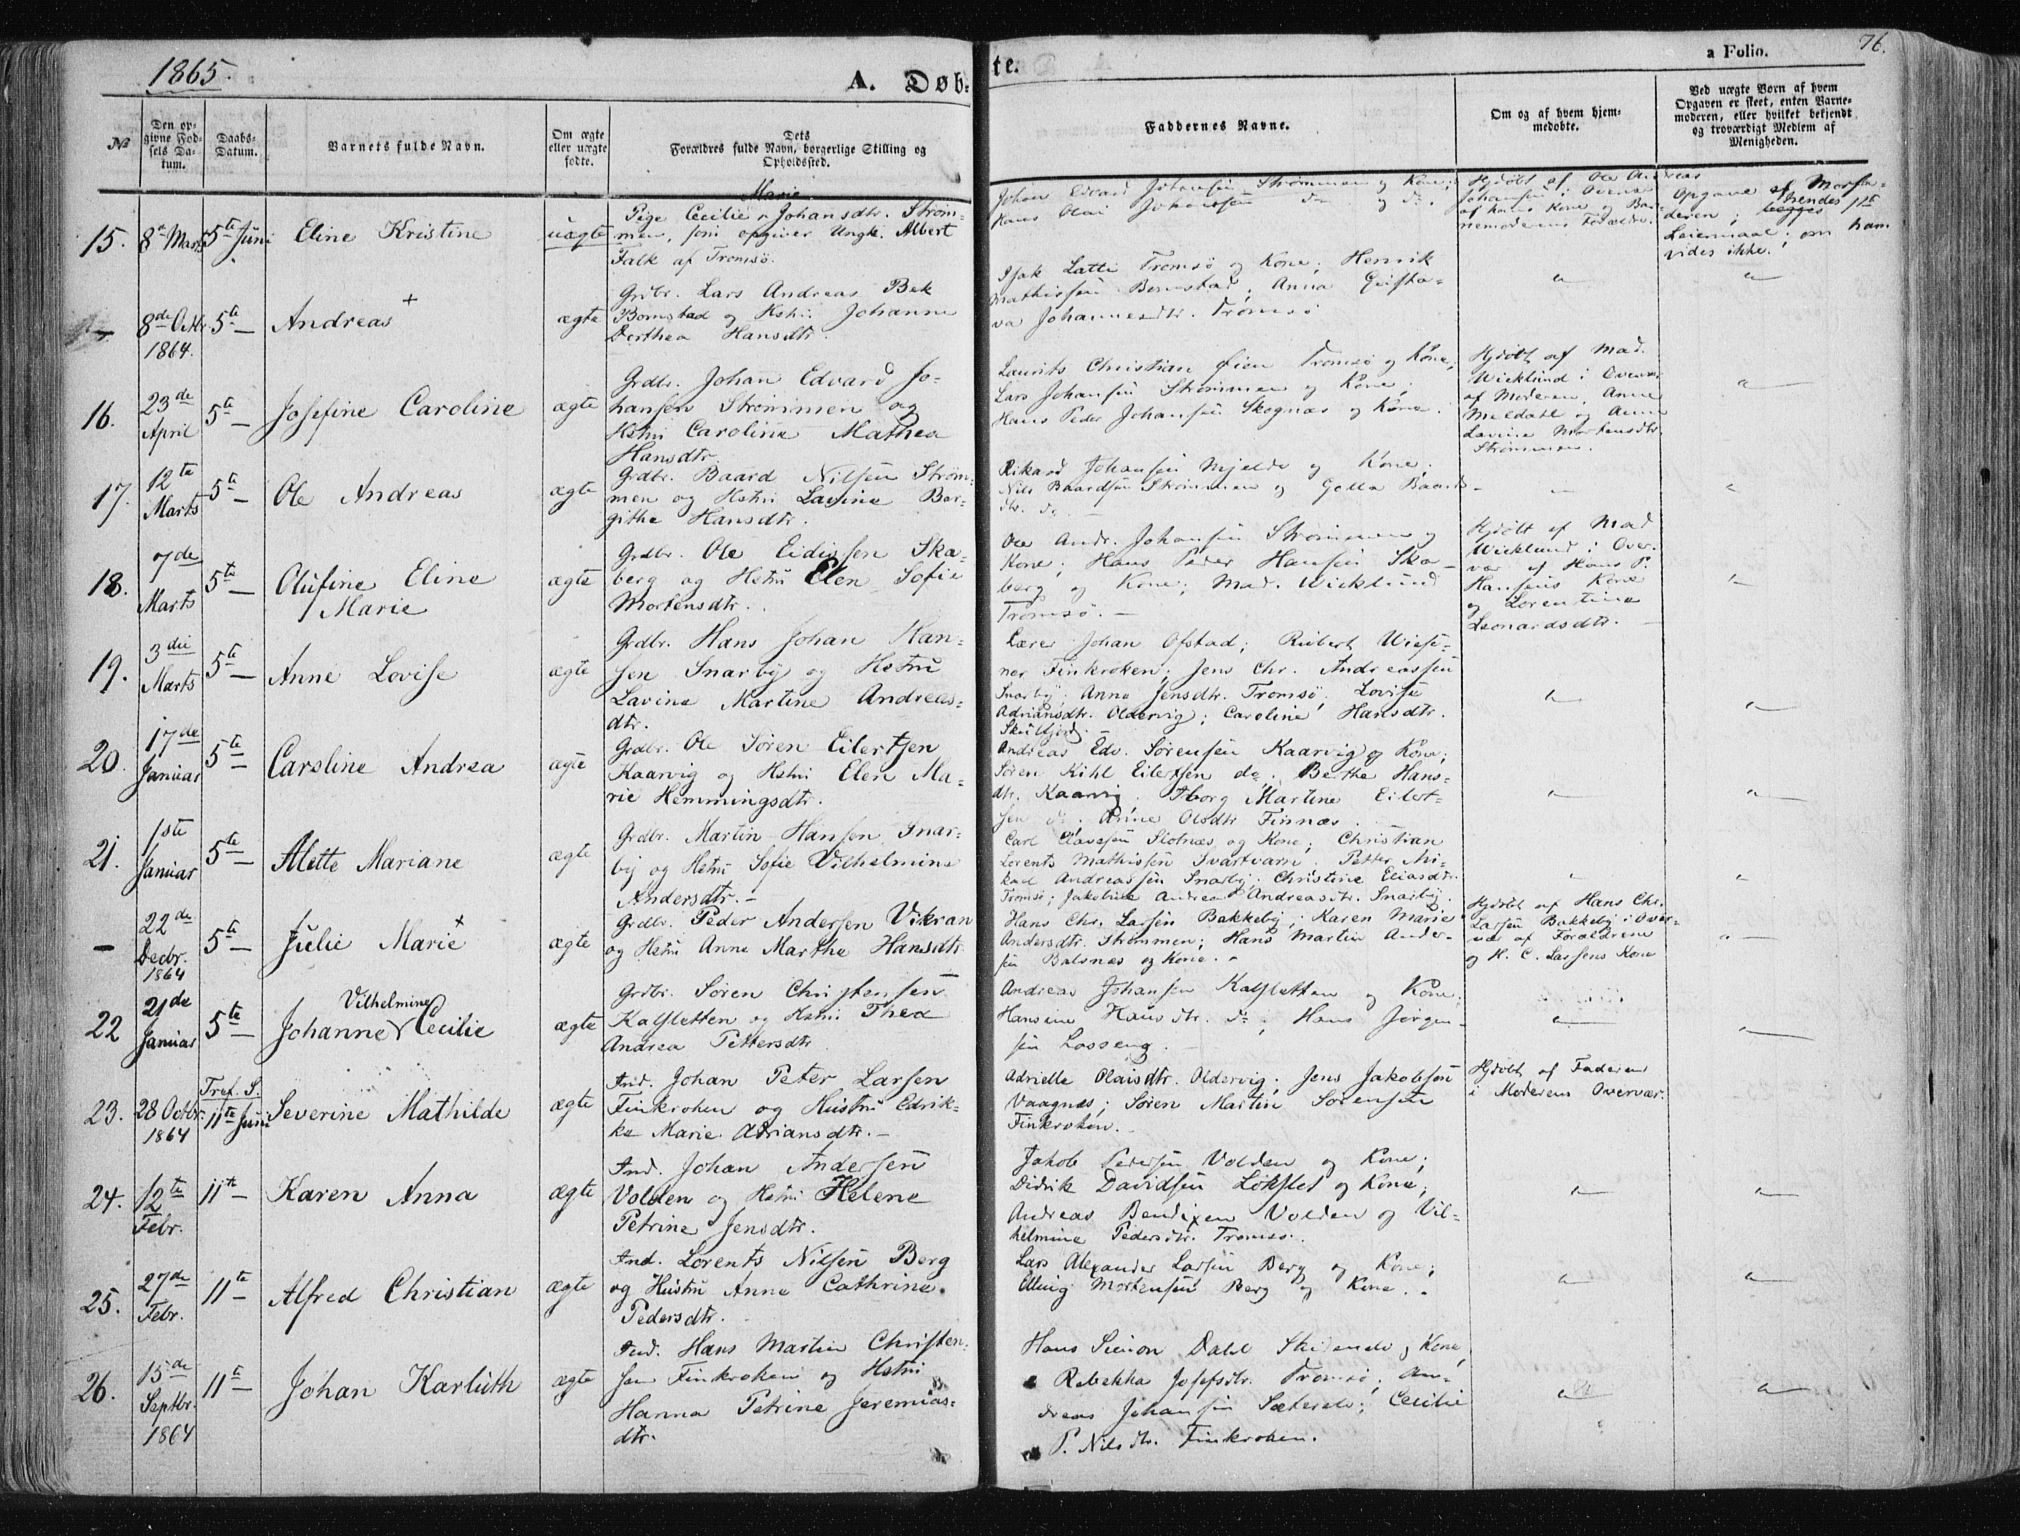 1865.
A. Døb-
te.
a Folio.
76.
№
Den op-
givne Fød-
sels Da-
tum.
Daabs-
Datum.
Barnets fulde Navn.
Om ægte
eller uægte
fødte.
Dets
Forældres fulde Navn, borgerlige Stilling og
Opholdssted.
Faddernes Navne.
Om og af hvem hjem-
medøbte.
Ved uægte Børn af hvem
Opgaven er skeet, enten Barne-
moderen, eller hvilket bekjendt
og troværdigt Medlem af
Menigheden.
15.
8de Marts
5te Juni
Eline Kristine
uægte
Marie
Pige Cecilie Johansdtr. Strøm-
men, som opgiver Ungk. Albert
Falk af Tromsø.
Johan Edvard Johansen Strømmen og Kone;
Hans Olai Johansen do og do.
Hjdøbt af Ole Andreas
Johansen i Overvær
af hans Kone og Bar-
nemoderens Forældre.
Opgave af Mosfa-
deren; hendes 1ste
Leiermaal; om ham
vides ikke.
8de Octbr.
1864.
5te
Andreas +
ægte
Grdbr. Lars Andreas Bek
Bomstad og Hstru Johanne
Dorthea Hansdtr.
Isak Latti Tromsø og Kone; Henrik
Mathissen Bomstad; Anna Gusta-
va Johannesdtr. Tromsø
16.
23de
April
5te
Josefine Caroline
ægte
Grdbr. Johan Edvard Jo-
hansen Strømmen og
Hstru Caroline Mathea
Hansdtr.
Laurits Christian Øien Tromsø og Kone;
Lars Johansen Strømmen og Kone;
Hans Peder Johansen Skognæs og Kone.
Hjdøbt af Mad.
Wicklund i Overvær
af Moderen, Anne
Meldahl og Anne
Lavine Mortensdtr.
Strømmen.
17.
12te
Marts
5te
Ole Andreas
ægte
Grdbr. Baard Nilsen Strøm-
men og Hstru Lavine Bar-
githe Hansdtr.
Rikard Johansen Mjelde og Kone;
Nils Baardsen Strømmen og Golla Baards-
dtr. do.
18.
7de
Marts
5te
Olufine Eline
Marie
ægte
Grdbr. Ole Eidissen Ska-
berg og Hstru Elen Sofie
Mortensdtr.
Ole Andr. Johansen Strømmen og
Kone; Hans Peder Hansen Ska-
berg og Kone; Mad. Wicklund
Tromsø.
Hjdøbt af Mad
Wicklund i Over-
vær af Hans P.
Hansens Kone
og Lorentine
Leonardsdtr.
19.
3die
Marts
5te
Anne Lovise
ægte
Grdbr. Hans Johan Han-
sen Snarby og Hstru
Lavina Martine Andreas-
dtr.
Lærer Johan Ofstad; Rubert Wise-
ner Finkroken; Jens Chr. Andreassen
Snarby; Anna Jensdtr. Tromsø; Lovise
Adriansdtr. Oldervig; Caroline Hansdtr.
Skulsfjord.
20.
17de
Januar
5te
Caroline Andrea
ægte
Grdbr. Ole Søren Eilertsen
Kaarvig og Hstru Elen Ma-
rie Hemmingsdtr.
Andreas Edv. Sørensen Kaarvig og Kone;
Søren Kihl Eilertsen do; Berthe Hans-
dtr. Kaarvig; Iborg Martine Eilert-
sen do. Anne Olsdtr Finnæs.
21.
1ste
Januar
5te
Alette Mariane
ægte
Grdbr. Martin Hansen Snar-
by og Hstru Sofie Vilhelmine
Andersdtr.
Carl Olavesen Slotnæs og Kone; Christian
Lorents Mathissen Svartvam. Petter Mi-
kal Andreassen Snarby; Christine Eliasdtr.
Tromsø; Jakobine Andrea Andreasdtr. Snarby.
22de
Decbr.
1864
5te
Julie Marie +
ægte
Grdbr. Peder Andersen Vikran
og Hstru Anne Marthe Hansdtr
Hans Chr. Larsen Bakkeby; Karen Marie
Andersdtr. Strømmen; Hans Martin Ander-
sen Balsnæs og Kone.
Hjdøbt af Hans Chr.
Larsen Bakkeby i Over-
vær af Forældrene
og H. C. Larsens Kone
22
21de
Januar
5te
Vilhelmine
Johanne Cecilie
ægte
Grdbr. Søren Christensen
Kalsletten og Hstru Thea
Andrea Pettersdtr.
Andreas Johansen Kalsletten og Kone;
Hansine Hansdtr. do; Hans Jørgen-
sen Losseng.
23.
28 Octbr.
1864
Tref. S.
11te Juni
Severine Mathilde
ægte
Ind. Johan Peter Larsen
Finkroken og Hustru Edrik-
ke Marie Adriansdtr.
Adrielle Olaisdtr. Oldervig; Jens Jakobsen
Vaagnæs; Søren Martin Sørensen
Finkroken.
Hjdøbt af Faderen
i Moderens Overvær.
24.
12te
Febr.
11te
Karen Anna
ægte
Ind. Johan Andersen
Volden og Hstru Helene
Petrine Jensdtr.
Jakob Pedersen Volden og Kone;
Didrik Davidsen Løkslet og Kone;
Andreas Bendixen Volden og Vil-
helmine Pedersdtr. Tromsø.
25.
27de
Febr.
11te
Alfred Christian
ægte
Ind. Lorents Nilsen Berg
og Hustru Anne Cathrine
Pedersdtr.
Lars Alexander Larsen Berg og Kone;
Elling Mortensen Berg og Kone.
26.
15de
Septbr.
1864
11te
Johan Karluth
ægte
Ind. Hans Martin Christen-
sen Finkroken og Hstru
Hanna Petrine Jeremias-
dtr.
Hans Simon Dahl og Kone
Rebekka Josefsdtr. Tromsø; An-
dreas Johansen Sæterelv; Cecilie
P. Nilsdtr. Finkroken.